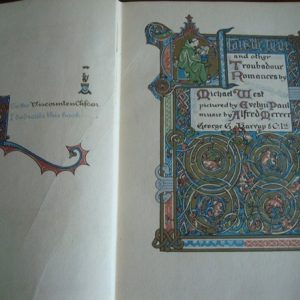 To the Viscountess Clifden
I dedicate this book
Clair de Lune
and other
Troubadour
Romances by
Michael West
pictured by Evelyn Paul
music by Alfred Mercer
George G. Harrap & Co. Ltd